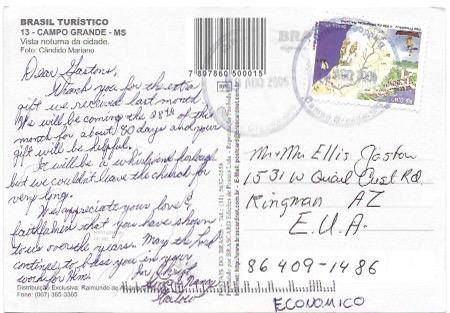 BRASIL TURÍSTICO
13 - CAMPO GRANDE - MS
Vista noturna da cidade.
Foto: Cândido Mariano
7 897860 500015
Dear Gastons,
Thank you for the extra
gift we received last month.
We will be coming the 28th of this
month for about 30 days and your
gift will be helpful.
It will be a whirlwind furlough
but we couldn't leave the church for
very long.
We appreciate your love &
faithfulness that you have shown
to us over the years. May the Lord
continue to bless you in your
work for Him.
Distribuição Exclusiva: Raimundo de
Fone: (067) 365-3365
BRASCARD
Mr & Mrs Ellis Gaston
1531 W Quail Crest Rd
Kingman AZ
E.U.A.
86409-1486
ECONOMICO